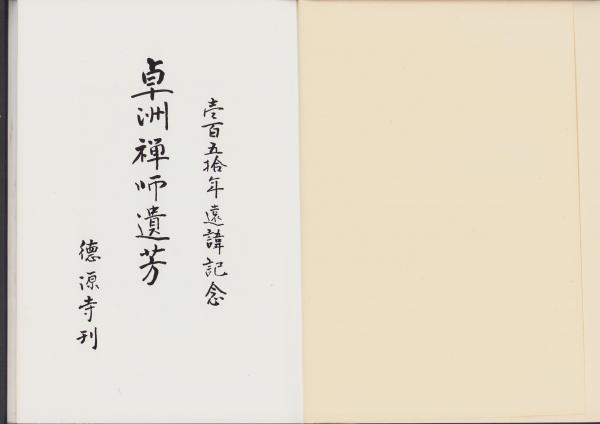 壱百五拾年遠諱記念
卓洲禅師遺芳
徳源寺刊